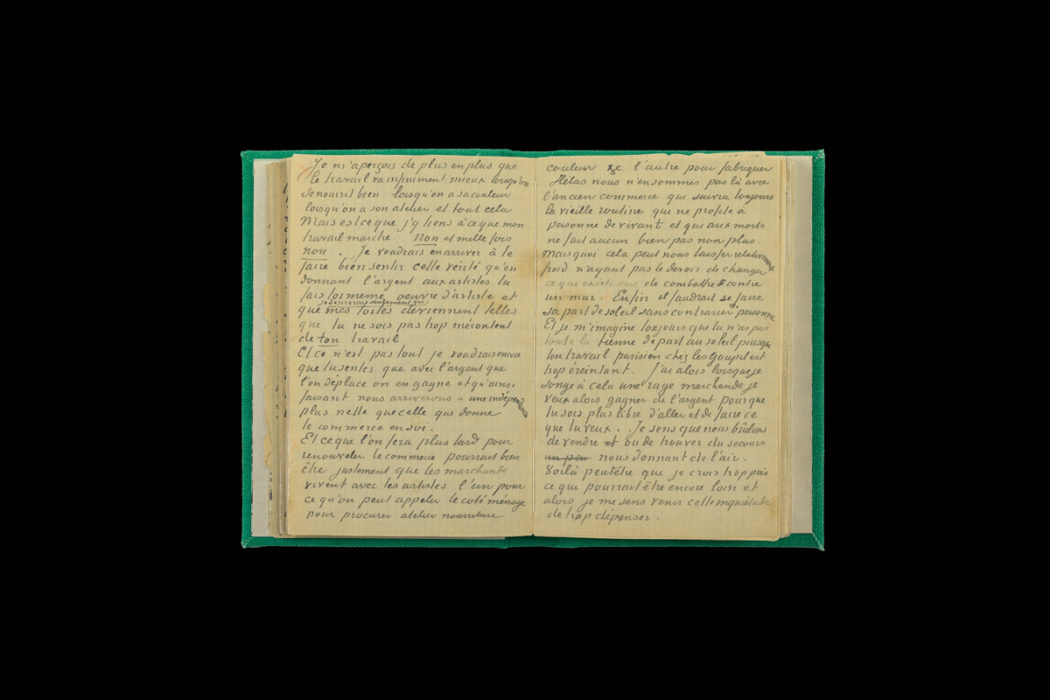 Je m'aperçois de plus en plus que
le travail va infiniment mieux lorsqu'on
se nourrit bien lorsqu'on a sa couleur
lorsqu'on a son atelier et tout cela
Mais est ce que j'y tiens à ce que mon
travail marche. Non et mille fois
non. Je voudrais en arriver à te
faire bien sentir cette vérité qu'en
donnant l'argent aux artistes tu
fais toi meme oeuvre d'artiste et
que je desirerais seulement que mes toiles deviennent telles
que tu ne sois pas trop mécontent
de ton travail
Et ce n'est pas tout je voudrais encore
que tu sentes que avec l'argent que
l'on déplace on en gagne et qu'ainsi
faisant nous arriverions à une indépendance
plus nette que celle que donne
le commerce en soi.
Et ce que l'on fera plus tard pour
renouveler le commerce pourrait bien
être justement que les marchands
vivent avec les artistes l'un pour
ce qu'on peut appeler le coté ménage
pour procurer atelier nourriture
couleur &c l'autre pour fabriquer
Hélas nous n'en sommes pas là avec
l'ancien commerce qui suivra toujours
la vieille routine qui ne profite à
personne de vivant et qui aux morts
ne fait aucun bien pas non plus.
Mais quoi cela peut nous laisser relativement
froid n'ayant pas le devoir de changer
ce qui existe ou de combattre contre
un mur. Enfin il faudrait se faire
sa part de soleil sans contrarier personne
Et je m'imagine toujours que tu n'as pas
toute la tienne de part au soleil puisque
ton travail parisien chez les Goupil est
trop éreintant. J'ai alors lorsque je
songe à cela une rage marchande je
veux alors gagner de l'argent pour que
tu sois plus libre d'aller et de faire ce
que tu veux. Je sens que nous brûlons
de vendre et ou de trouver du secours
un peu nous donnant de l'air.
Voilà peutêtre que je crois trop près
ce qui pourrait être encore loin et
alors je me sens venir cette inquiétude
de trop dépenser.